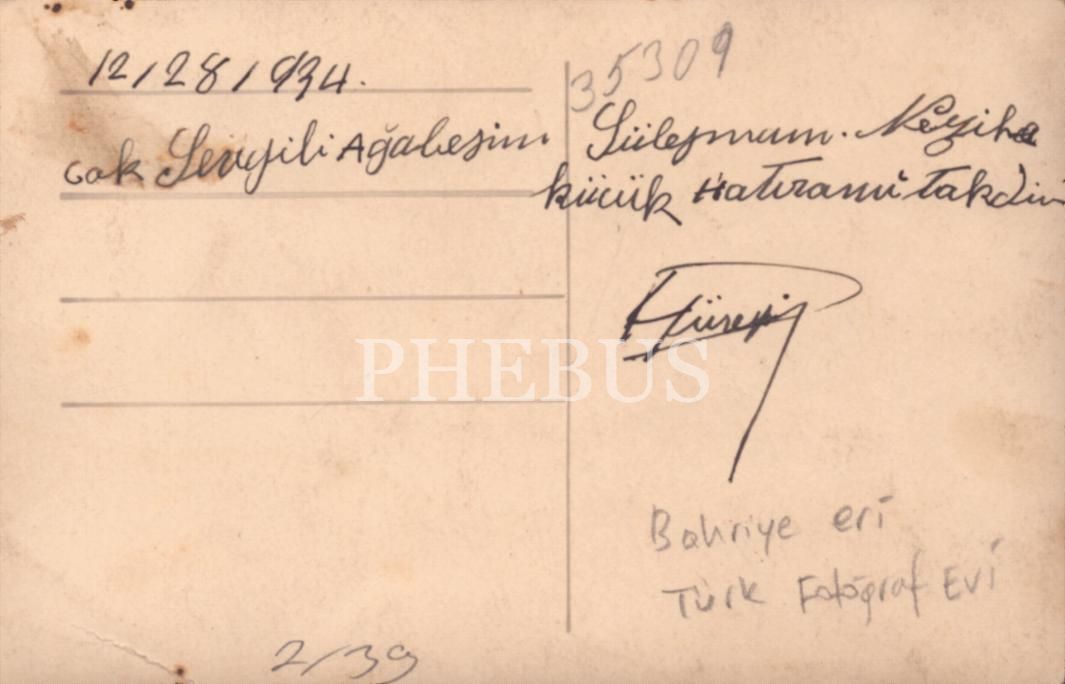 12/28/934.
35309
Cok Sevgili Ağabeyim Süleyman. Neziha
küçük Hatıramı takdim
PHEBUS
Bahriye eri
Türk Fotoğraf Evi
2/39